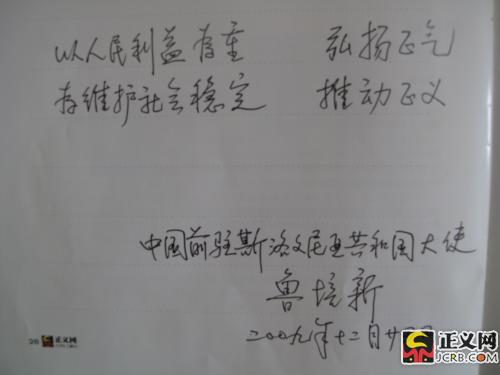 以人民利益为重 弘扬正气
为维护社会稳定 推动正义
中国前驻斯洛文尼亚共和国大使
鲁培新
二00九年十二月廿
28 正义网
正义网
JCRB.COM